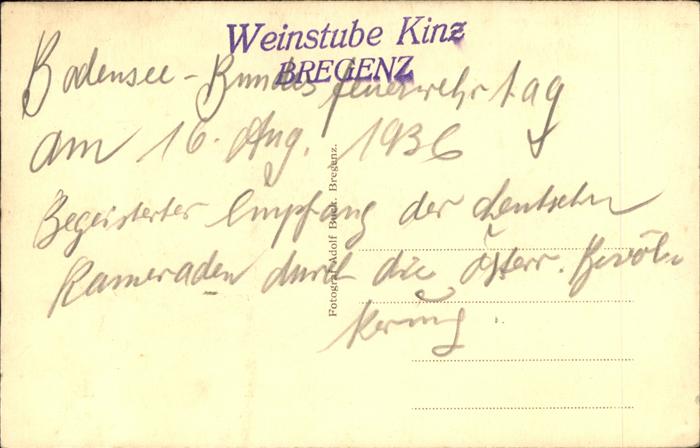 Weinstube Kinz
BREGENZ
Bodensee-Bundesfeuerwehrtag
am 16. Aug. 1936
Begeisterter Empfang der deutschen
Kameraden durch die österr. Bevöl-
kerung.
Fotograf Adolf Buck. Bregenz.